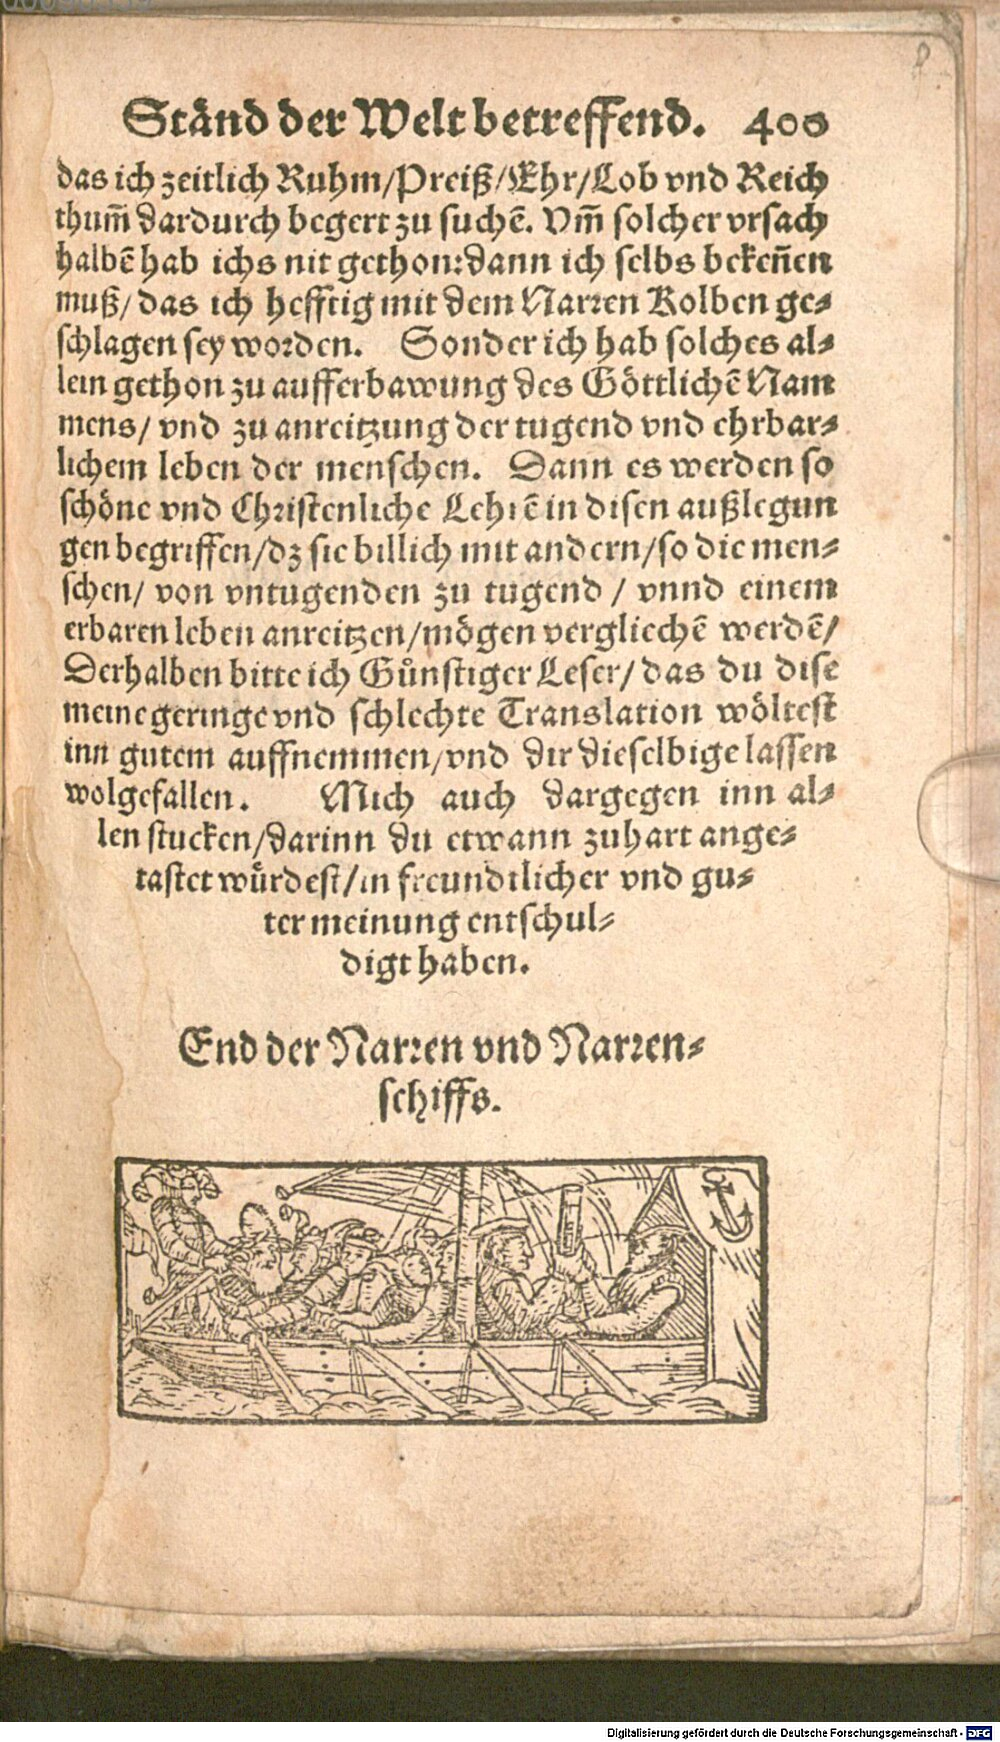 Ständ der Welt betreffend. 400
das ich zeitlich Ruhm/Preiß/Ehr/Lob vnd Reich
thum̃ dardurch begert zu suchẽ. Vm̃ solcher vrsach
halbẽ hab ichs nit gethon: dann ich selbs bekeñen
muß/ das ich hefftig mit dem Narren Kolben ge⸗
schlagen sey worden. Sonder ich hab solches al⸗
lein gethon zu aufferbawung des Göttlichẽ Nam
mens/ vnd zu anreitzung der tugend vnd ehrbar⸗
lichem leben der menschen. Dann es werden so
schöne vnd Christenliche Lehrẽ in disen außlegun
gen begriffen/dz sie billich mit andern/so die men⸗
schen/ von vntugenden zu tugend / vnnd einem
erbaren leben anreitzen/mögen vergliechẽ werdẽ/
Derhalben bitte ich Gůnstiger Leser/ das du dise
meine geringe vnd schlechte Translation wöltest
inn gutem auffnemmen/vnd dir dieselbige lassen
wolgefallen. Mich auch dargegen inn al⸗
len stucken/darinn du etwann zuhart ange⸗
tastet würdest/in freundtlicher vnd gu⸗
ter meinung entschul⸗
digt haben.
End der Narren vnd Narren⸗
schiffs.
Digitalisierung gefördert durch die Deutsche Forschungsgemeinschaft - DFG